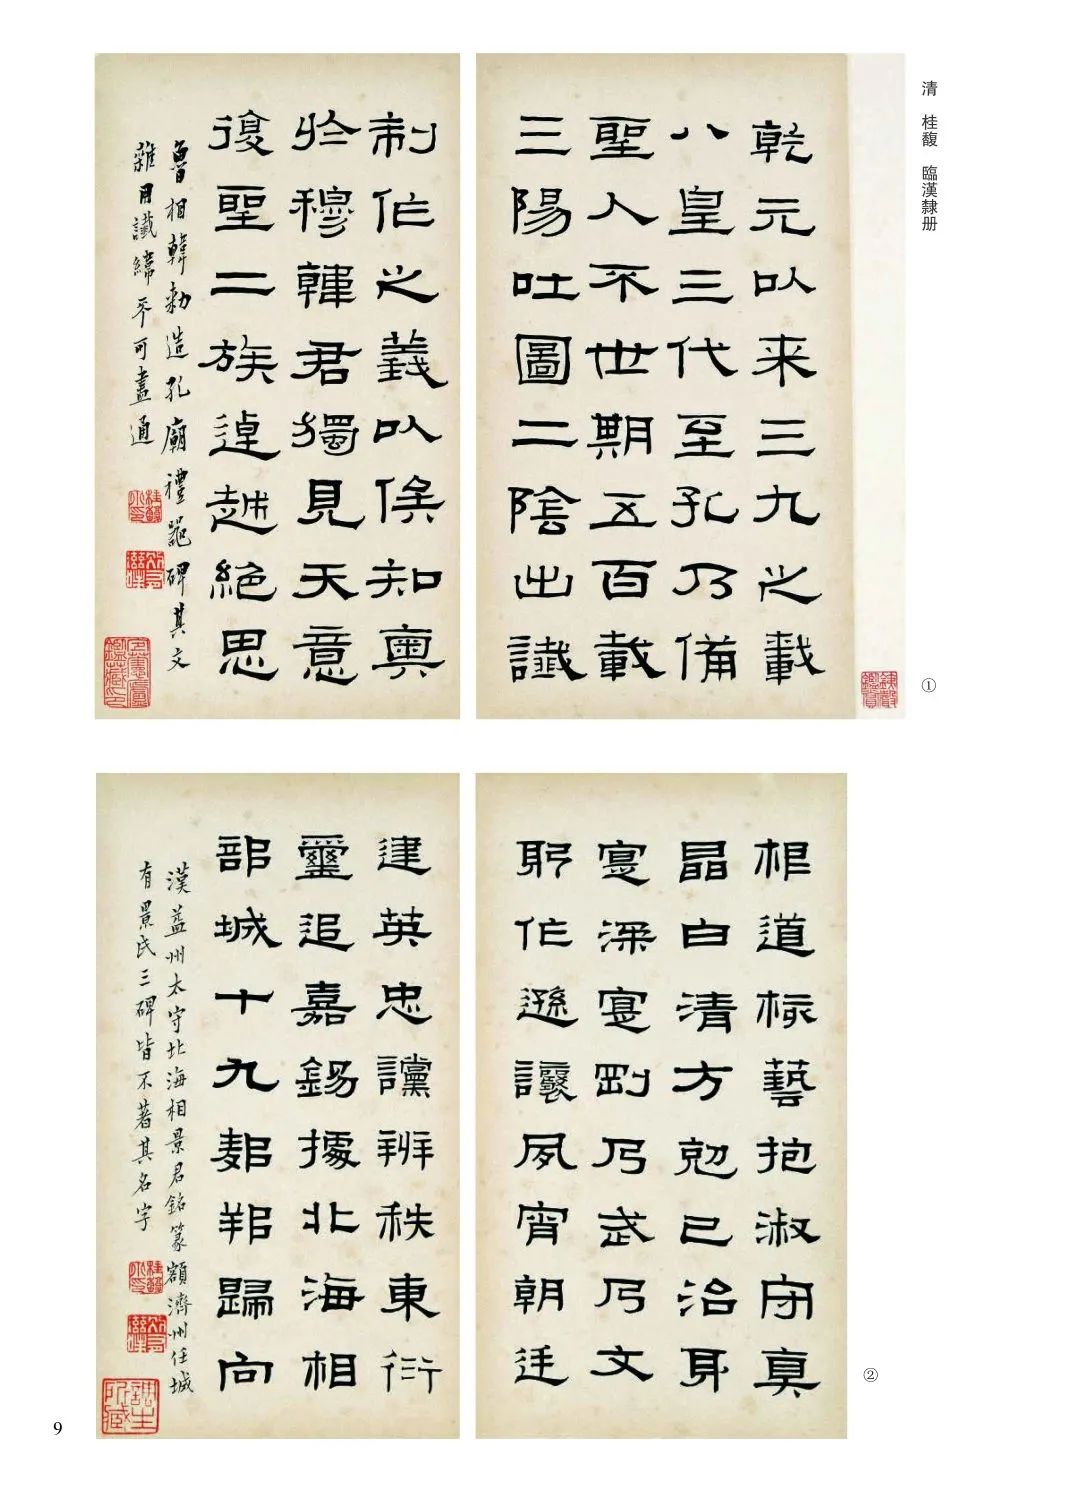 清 桂馥 臨漢隸册
乾元以来三九之載
八皇三代至孔乃備
聖人不世期五百載
三陽吐圖二陰出讖
制作之義以俟知奧
於穆韓君獨見天意
復聖二族逴越絕思
魯相韓勑造孔廟禮器碑其文
雜用讖緯不可盡通
①
根道核藝抱淑守真
晶白清方剋己治身
寔深寔剛乃武乃文
躬作遜讓夙宵朝廷
建英忠讜辨秩東衍
璽追嘉錫據北海相
部城十九鄰邦歸向
漢益州太守北海相景君銘篆額濟州任城
有景氏三碑皆不著其名字
②
9